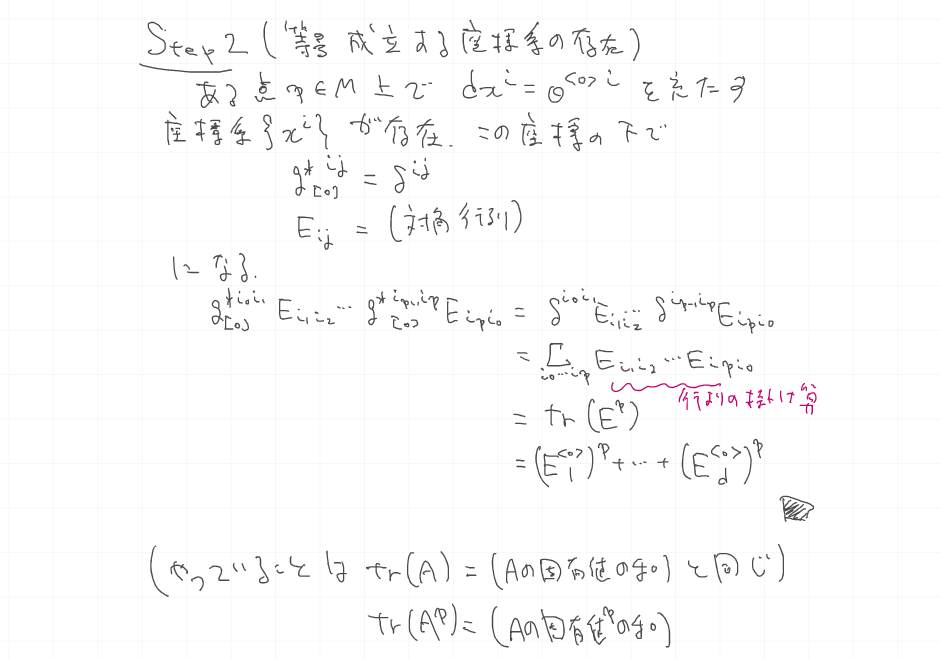 Step 2 (等号成立する座標系の存在)
ある点p∈M上で dx^i = θ^{<0>i} を満たす
座標系{x^i}が存在. この座標の下で
g^{*ij}_{[0]} = δ^{ij}
E_{ij} = (対角行列)
になる.
g^{*i_0i_1}_{[0]} E_{i_1i_2} ⋯ g^{*i_{p-1}i_p}_{[0]} E_{i_pi_0} = δ^{i_0i_1} E_{i_1i_2} ⋯ δ^{i_{p-1}i_p} E_{i_pi_0}
= Σ_{i_0⋯i_p} E_{i_1i_2} ⋯ E_{i_pi_0}
行列の掛け算
= tr(E^p)
= (E^{<0>}_1)^p + ⋯ + (E^{<0>}_d)^p
(やっていることは tr(A) = (Aの固有値の和) と同じ)
tr(A^p) = (Aの固有値^pの和)